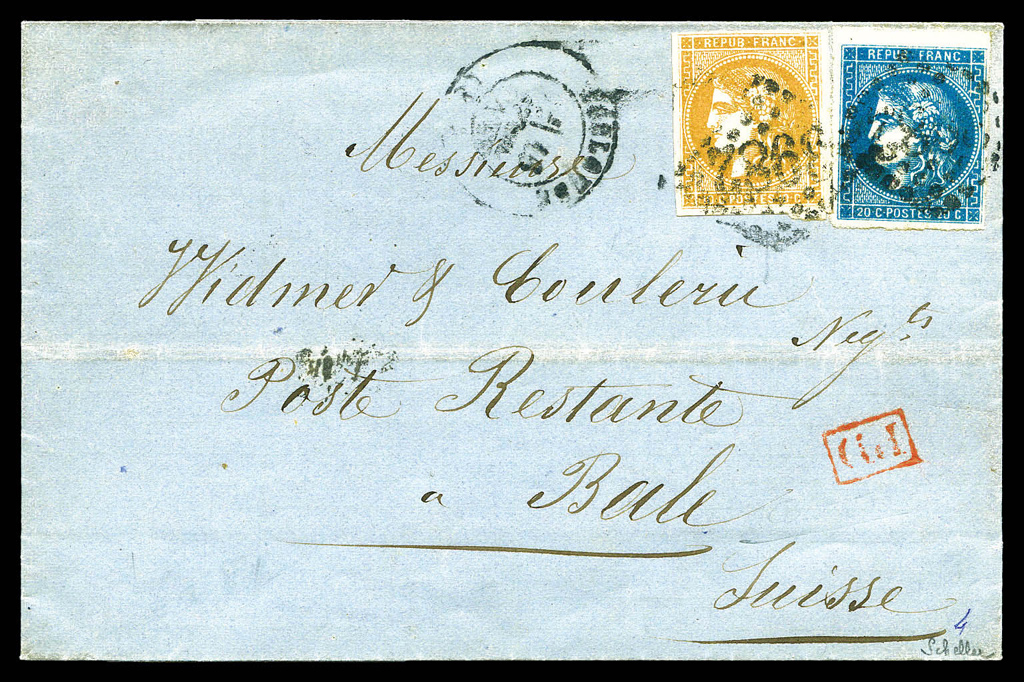 REPUB · FRANC
REPUB · FRANC
20 · C · POSTES · 20 · C
Messieurs
Widmer & Coulerie
Neg.ts
Poste Restante
a Bale
Suisse
4
Scheller